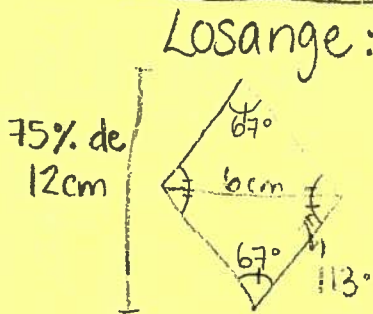 Losange:
75% de
12cm
67°
6cm
67°
113°